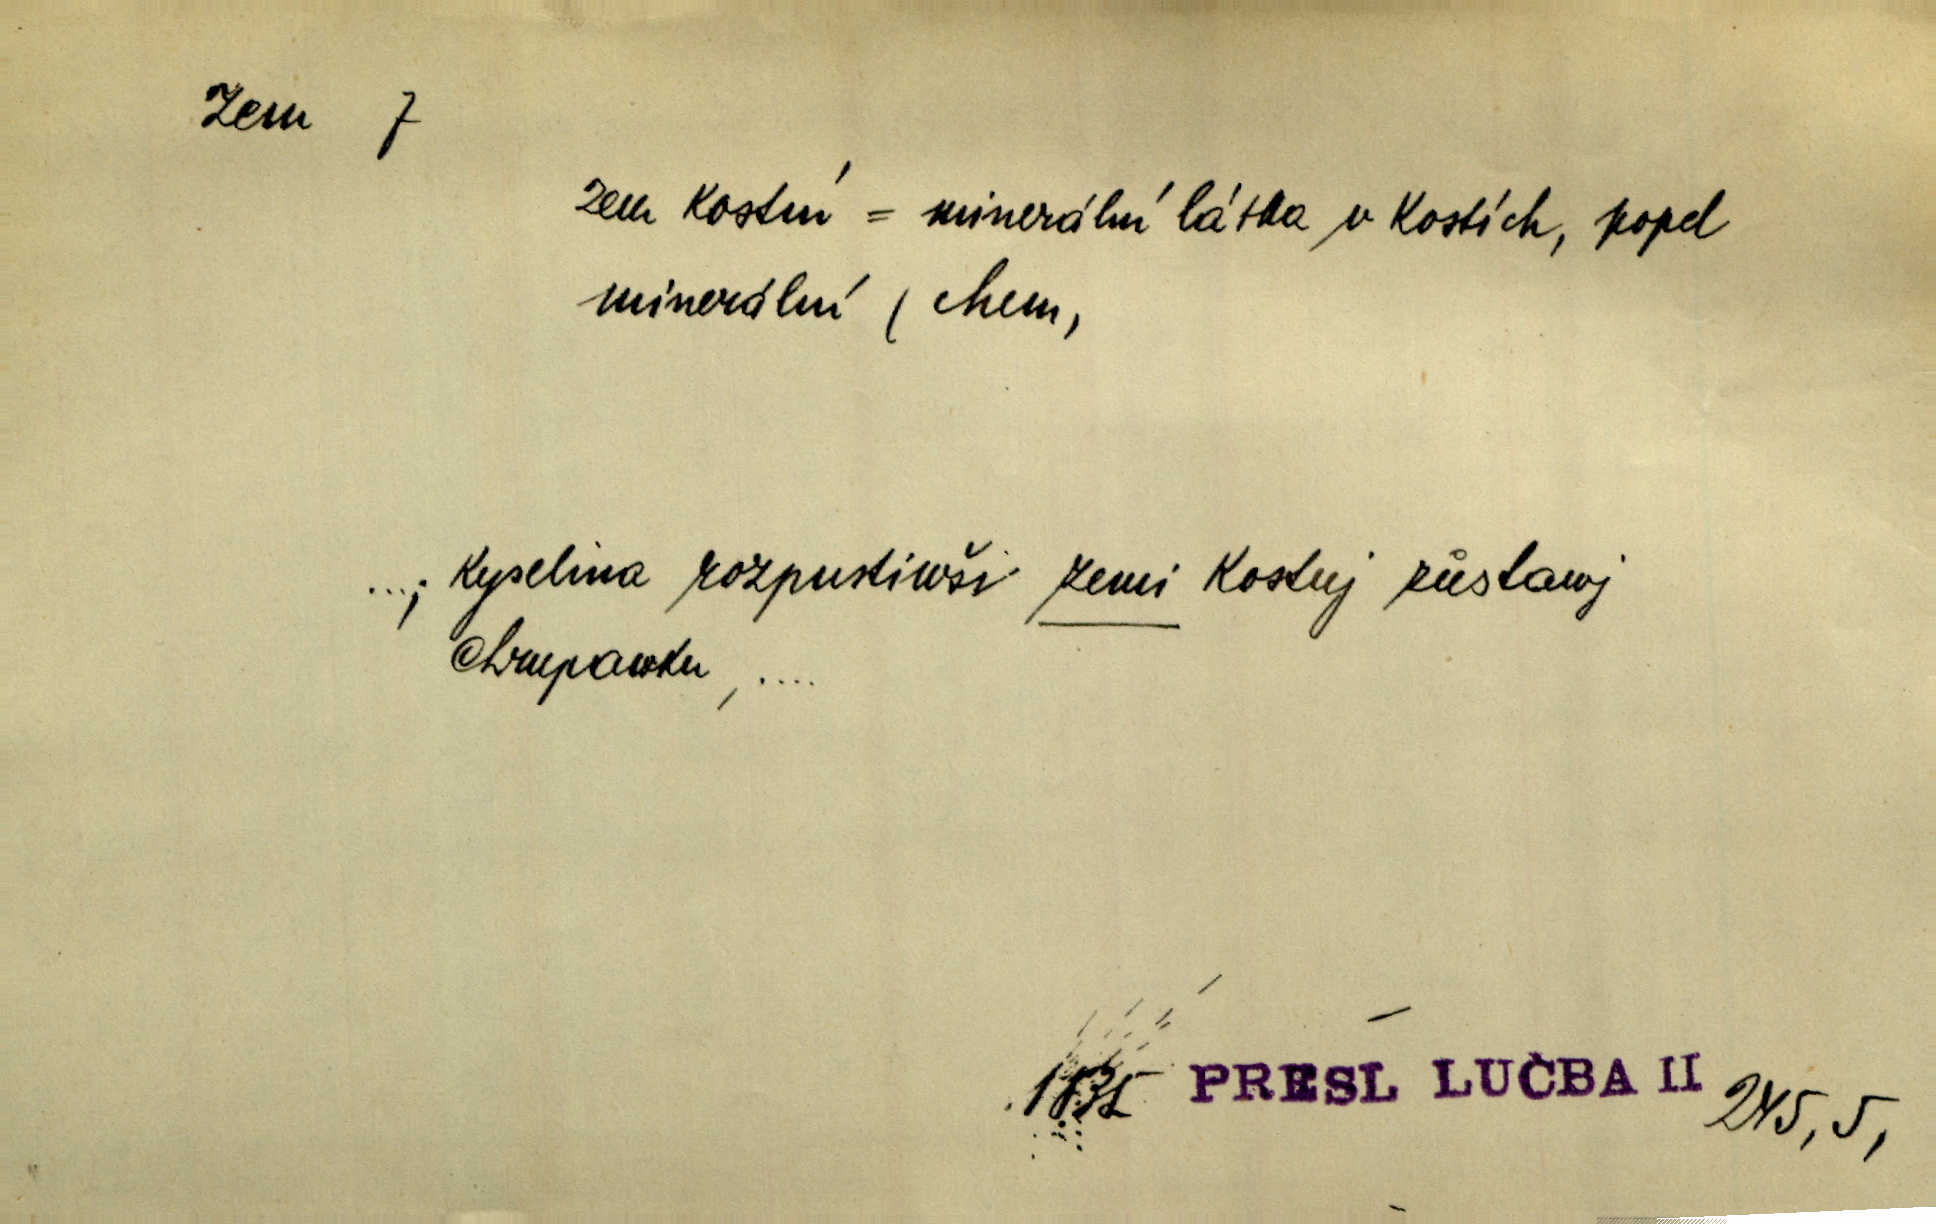 Zem f
zem kostní = minerální látka v kostích, popel
minerální (chem,
...; kyselina rozpustiwši zemi kostnj zůstawj
chrupawku, ....
1835 PRESL LUČBA II 245, 5,